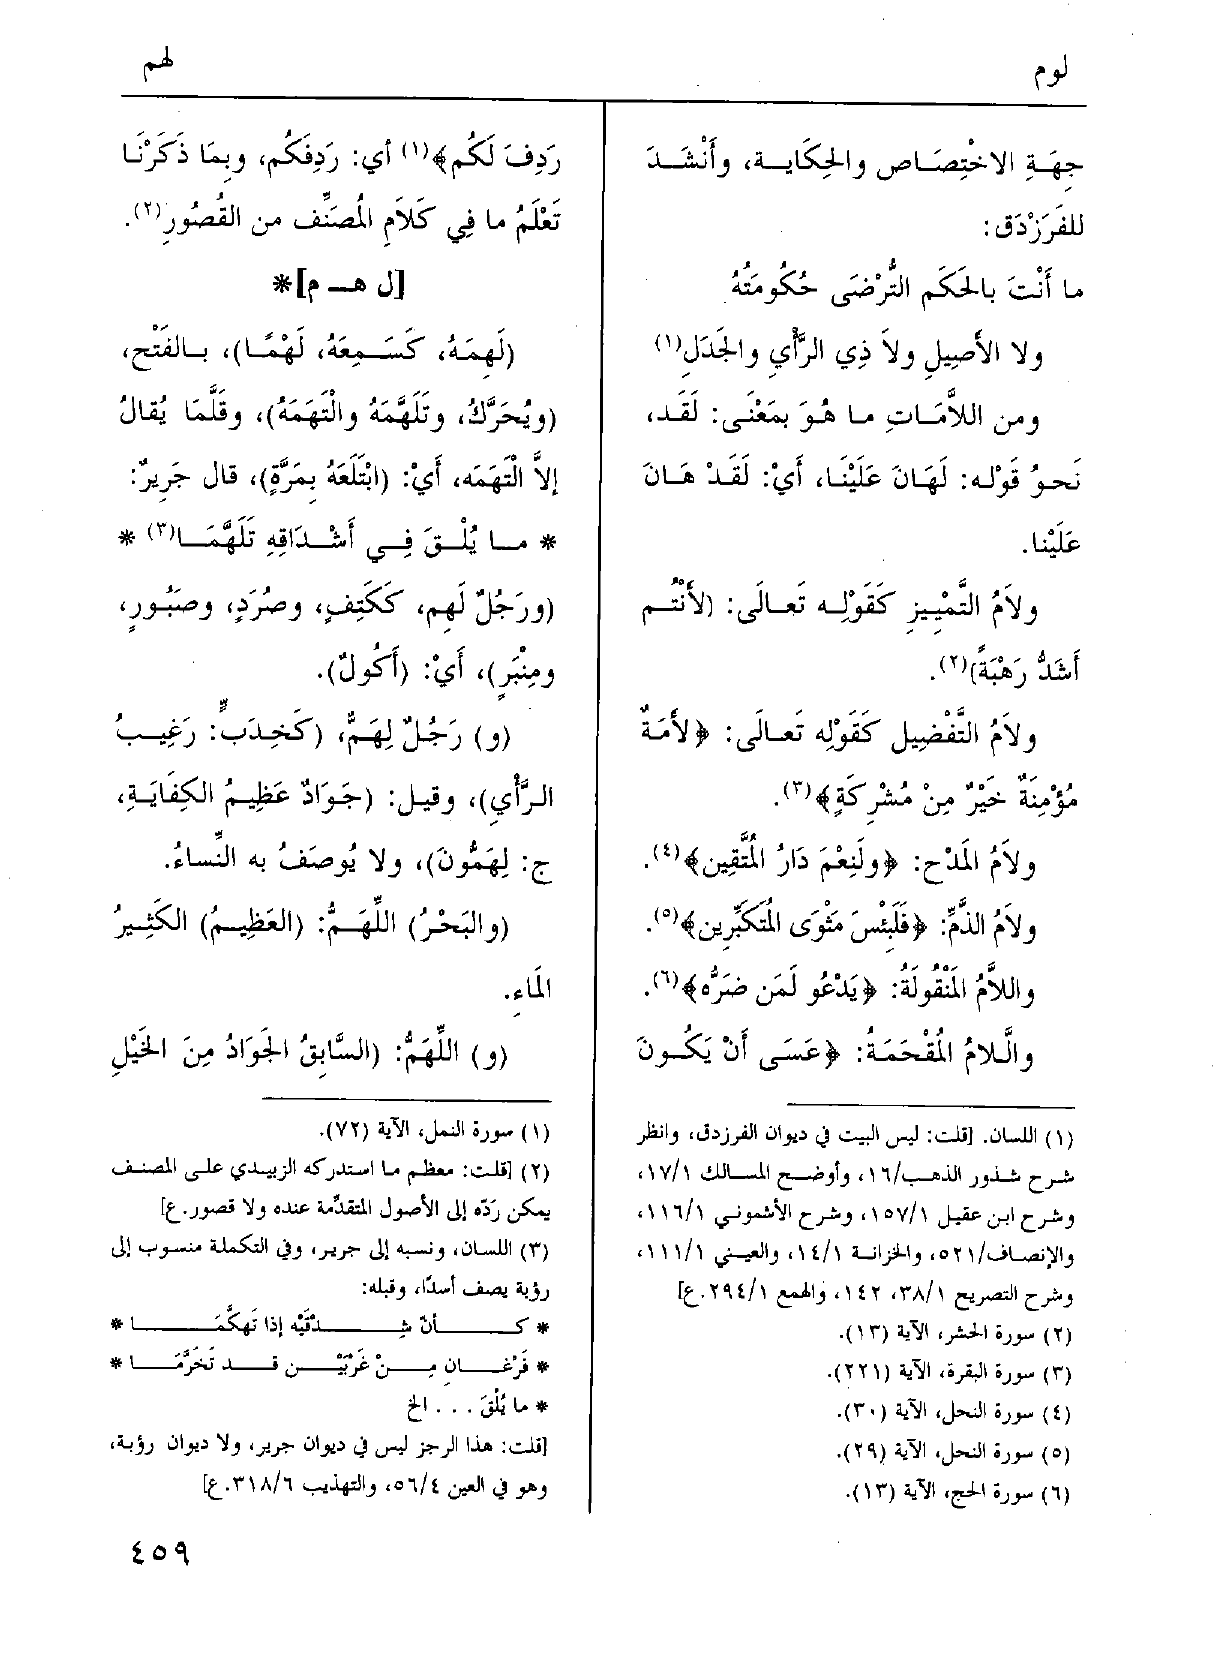 لوم
لهم
جِهَةِ الاخْتِصَـاص والحِكايـة، وأَنْشَـدَ
للفَرَزْدَق:
ما أَنْتَ بالحَكَم التُّرْضَى حُكُومَتُهُ
ولا الأَصِيلِ ولاَ ذِي الرَّأْيِ والجَدَلِ(١)
ومن اللاَّمَـاتِ مـا هـُوَ بِمَعْنَى: لَقَـد،
نَحـوُ قَوْلـه: لَهَانَ عَلَيْنـا، أَيْ: لَقَـدْ هَـانَ
عَلَيْنا.
ولاَمُ التَّمْيِيزِ كَقَوْلِـه تَعـالَى: (لأَنْتُـم
أَشَدُّ رَهْبَةً)(٢).
ولاَمُ التَّفْضِيل كَقَوْلِه تَعـالَى: ﴿لأَمَةٌ
مُؤْمِنَةٌ خَيْرٌ مِنْ مُشْرِكَةٍ﴾(٣).
ولاَمُ المَدْح: ﴿ولَنِعْمَ دَارُ المُتَّقِين﴾(٤).
ولاَمُ الذَّمِّ: ﴿فَلَبِئْسَ مَثْوَى المُتَكَبِّرِين﴾(٥).
واللاَّمُ المَنْقُولَةُ: ﴿يَدْعُو لَمَن ضَرُّه﴾(٦).
والَّلامُ المُقْحَمَـةُ: ﴿عَسَى أَنْ يَكُـونَ
(١) اللسان. [قلت: ليس البيت في ديوان الفرزدق، وانظر
شرح شـذور الذهـب/١٦، وأوضـح المسـالك ١٧/١،
وشرح ابن عقيل ١٥٧/١، وشرح الأشموني ١١٦/١،
والإنصـاف/٥٢١، والخزانـة ١٤/١، والعيـني ١١١/١،
وشرح التصريح ٣٨/١، ١٤٢، والهمع ٢٩٤/١.ع]
(٢) سورة الحشر، الآية (١٣).
(٣) سورة البقرة، الآية (٢٢١).
(٤) سورة النحل، الآية (٣٠).
(٥) سورة النحل، الآية (٢٩).
(٦) سورة الحج، الآية (١٣).
رَدِفَ لَكُم﴾(١) أي: رَدِفَكُم، وبِمَا ذَكَرْنَـا
تَعْلَمُ ما فِي كَلاَمِ المُصَنِّف من القُصُورِ(٢).
[ل هـ م]*
(لَهِمَهُ، كَسَـمِعَهُ، لَهْمًـا)، بـالفَتْح،
(ويُحَرَّكُ، وتَلَهَّمَهُ والْتَهَمَهُ)، وقَلَّمَا يُقالُ
إلاَّ الْتَهَمَه، أَيْ: (ابْتَلَعَهُ بِمَرَّةٍ)، قال جَرِيرٌ:
* مـا يُلْـقَ فِـي أَشْـدَاقِهِ تَلَهَّمَـا(٣) *
(ورَجُلٌ لَهِم، كَكَتِفٍ، وصُرَدٍ، وصَبُـورٍ،
ومِنْبَرٍ)، أَيْ: (أَكُولٌ).
(و) رَجُلٌ لِهَمٌّ، (كَخِدَبٍّ: رَغِيـبُ
الرَّأْيِ)، وقيـل: (جَوَادٌ عَظِيمُ الكِفَايَـةِ،
ج: لِهَمُّونَ)، ولا يُوصَفُ به النِّساءُ.
(والبَحْرُ) اللِّهَـمُّ: (العَظِيـمُ) الكَثِيرُ
المَاءِ.
(و) اللِّهَمُّ: (السَّابِقُ الجَوَادُ مِنَ الخَيْلِ
(١) سورة النمل، الآية (٧٢).
(٢) [قلت: معظم ما استدركه الزبيدي على المصنف
يمكن ردّه إلى الأصول المتقدّمة عنده ولا قصور.ع]
(٣) اللسان، ونسبه إلى جرير، وفي التكملة منسوب إلى
رؤبة يصف أسدًا، وقبله:
* كـــأنّ شِـــدْقَيْه إذا تَهكَّمَـــا *
* فَرْغـــان مِـــنْ غَرْبَيْـــن قـــد تَخَرَّمَـــا *
* ما يُلْقَ . . . الخ
[قلت: هذا الرجز ليس في ديوان جرير، ولا ديوان رؤبة،
وهو في العين ٥٦/٤، والتهذيب ٣١٨/٦.ع]
٤٥٩